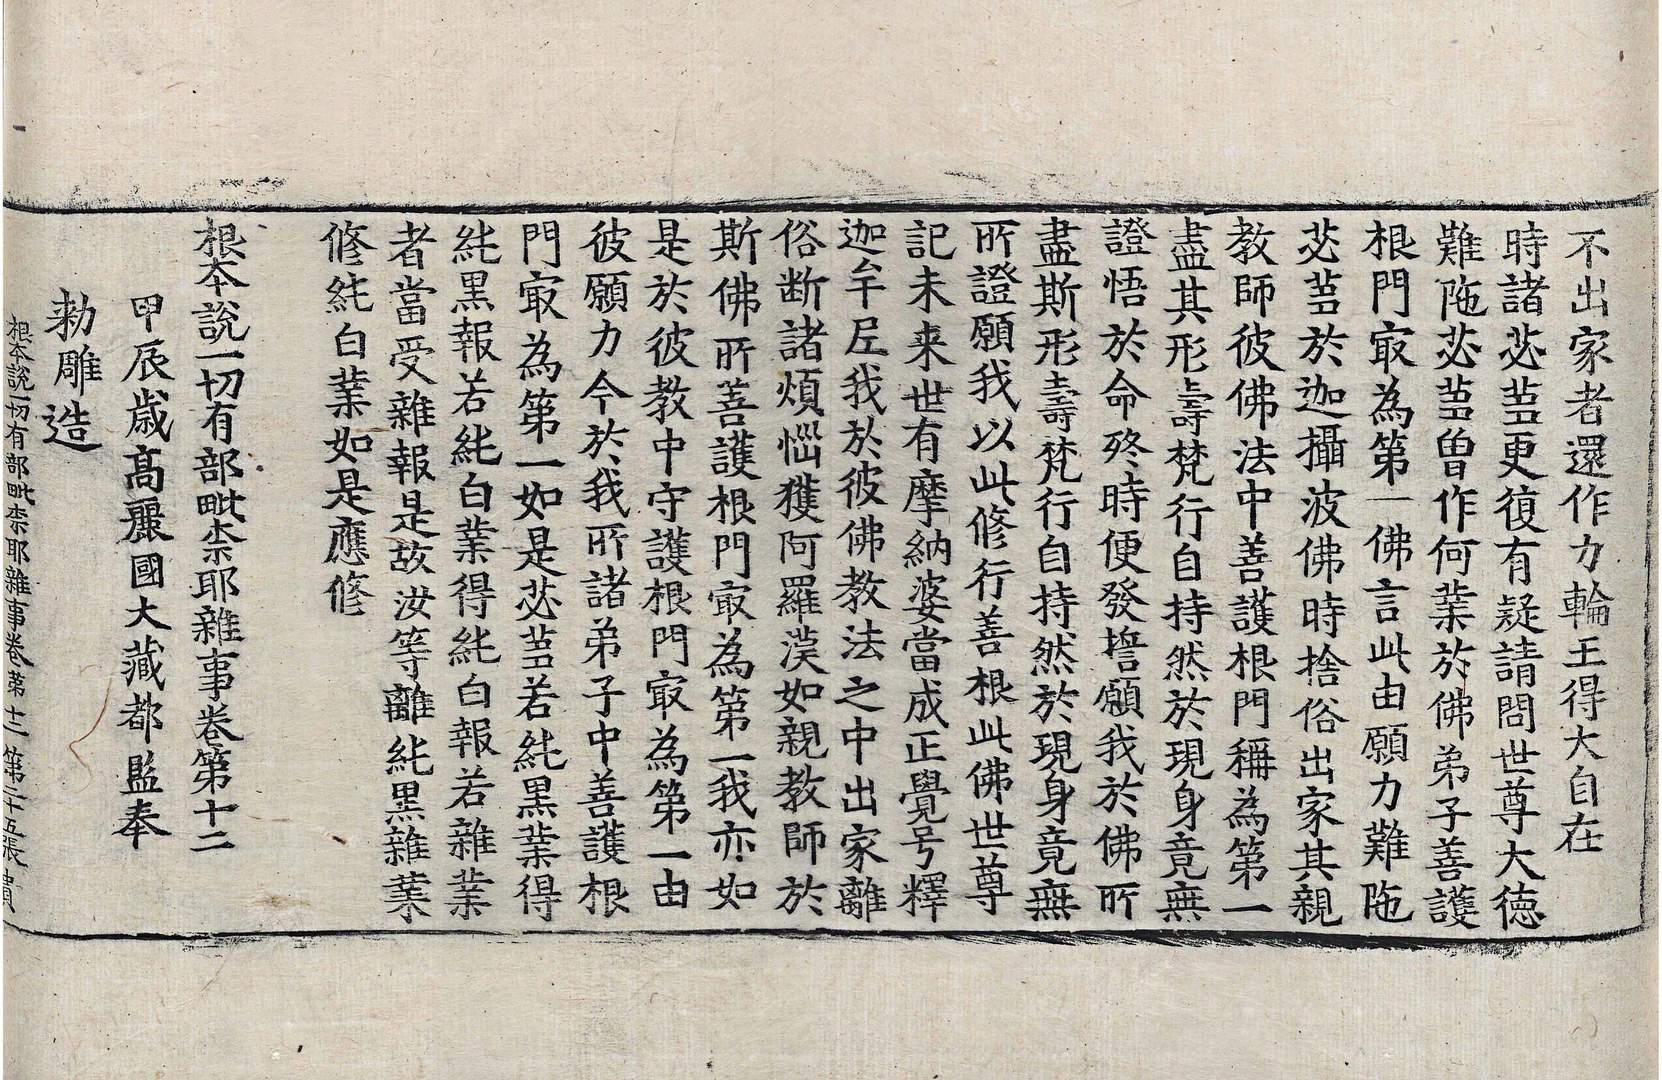 不出家者還作力輪王得大自在
時諸苾芻更復有疑請問世尊大德
難陁苾芻曾作何業於佛弟子善護
根門㝡為第一佛言此由願力難陁
苾芻於迦攝波佛時捨俗出家其親
教師彼佛法中善護根門稱為第一
盡其形壽梵行自持然於現身竟無
證悟於命終時便發誓願我於佛所
盡斯形壽梵行自持然於現身竟無
所證願我以此修行善根此佛世尊
記未来世有摩納婆當成正覺号釋
迦牟尼我於彼佛教法之中出家離
俗断諸煩惱獲阿羅漢如親教師於
斯佛所善護根門㝡為第一我亦如
是於彼教中守護根門㝡為第一由
彼願力今於我所諸弟子中善護根
門㝡為第一如是苾芻若純黒業得
純黒報若純白業得純白報若雜業
者當受雜報是故汝等離純黒雜業
修純白業如是應修
根本說一切有部毗奈耶雜事卷第十二
甲辰歲高麗國大藏都監奉
勑雕造
根本說一切有部毗奈耶雜事卷第十二 第二十五張 貴